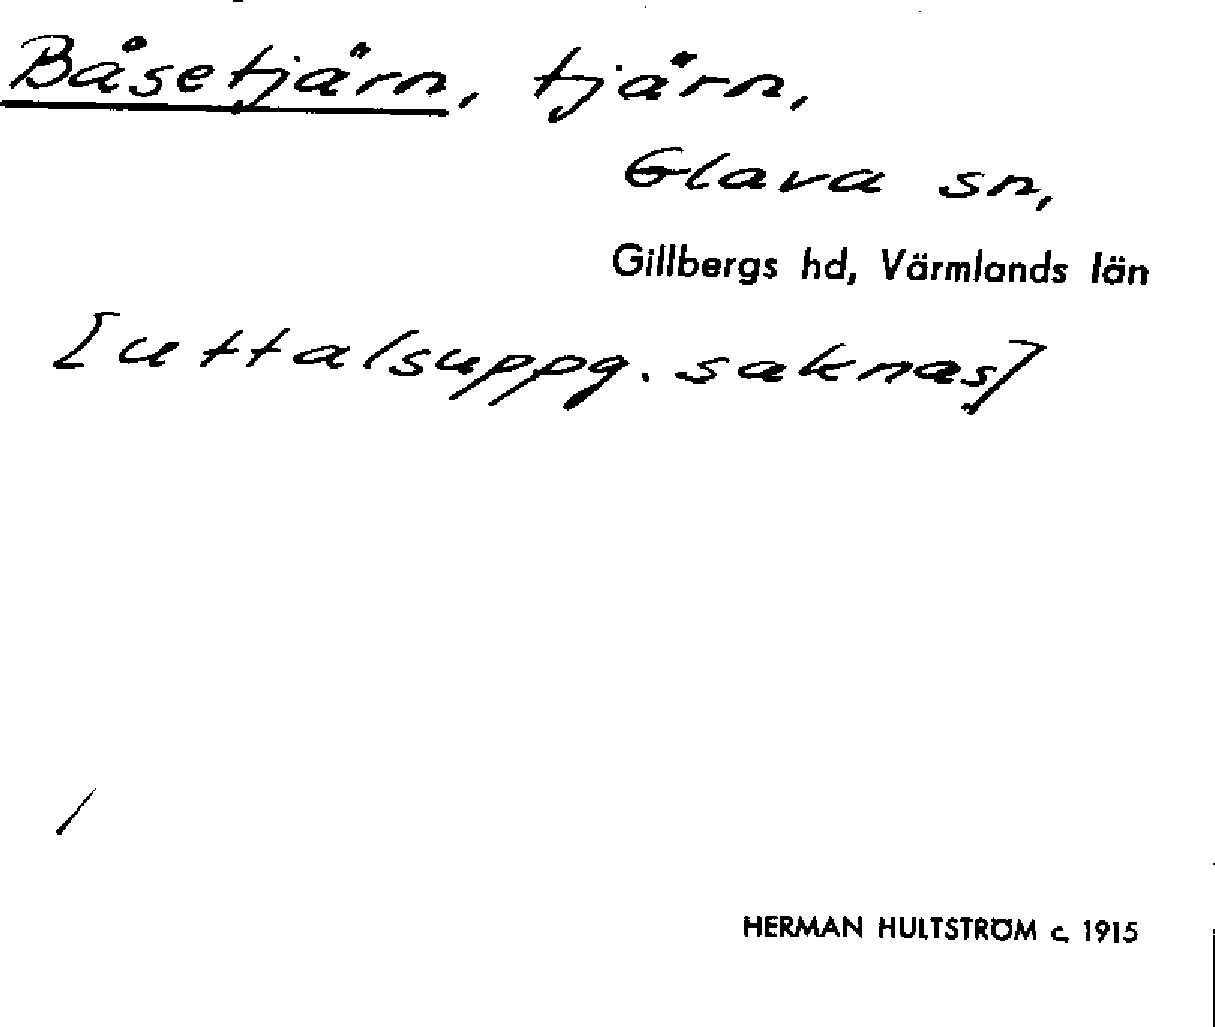 Båsetjärn, tjärn,
Glava sn,
Gillbergs hd, Värmlands län
[uttalsuppg. saknas]
/
HERMAN HULTSTRÖM c. 1915